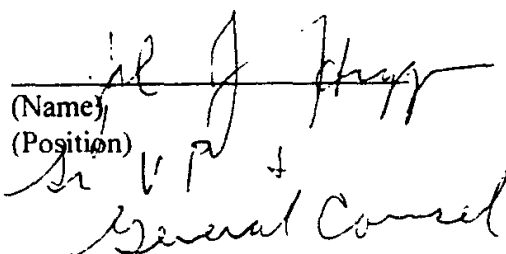 J
(Name)
(Position)
Sr VP +
General Counsel